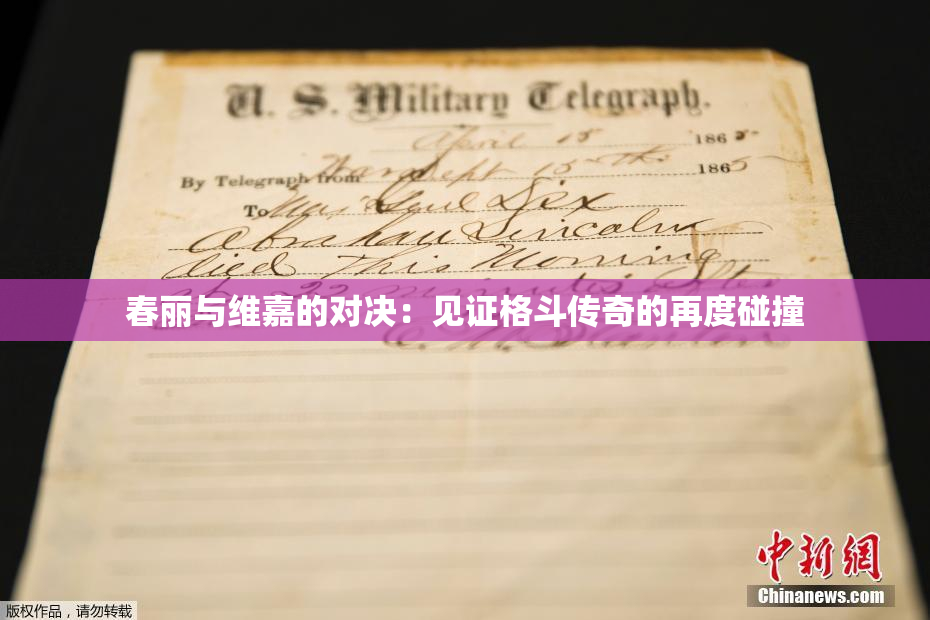 U. S. Military Telegraph.
April 15 1865
By Telegraph from War Dept 15th 1865
To Maj Genl Dix
Abraham Lincoln
died This Morning
22 minutes after
春丽与维嘉的对决：见证格斗传奇的再度碰撞
E. M. Stanton
中新网
Chinanews.com
版权作品，请勿转载